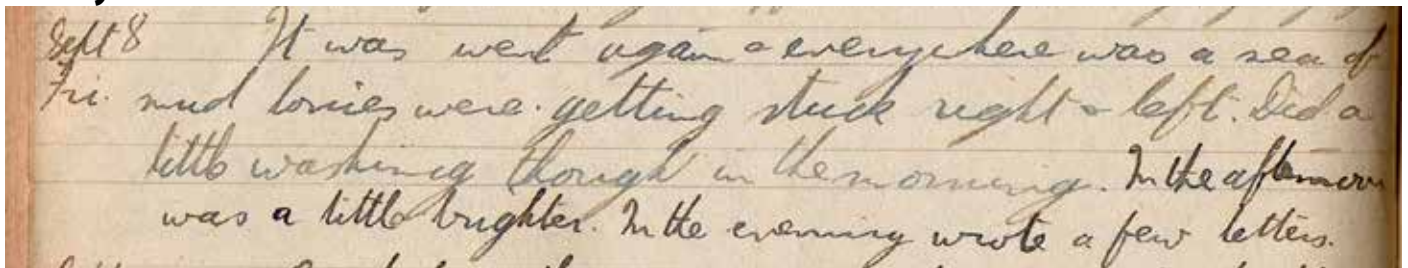 Sept 8 It was wet again & everywhere was a sea of
Fri. mud lorries were getting stuck right & left. Did a
little washing though in the morning. In the afternoon
was a little brighter. In the evening wrote a few letters.